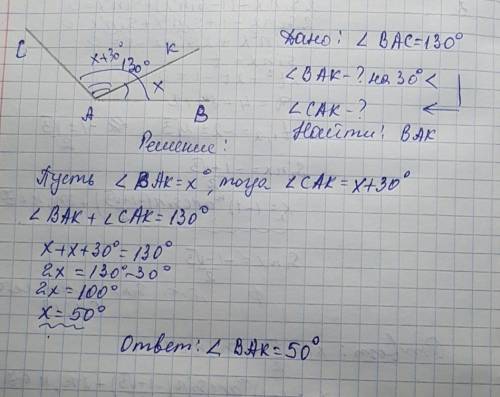 C
x+30°
130°
K
x
A
B
Дано: ∠ BAC=130°
∠BAK-? на 30° <
∠CAK-?
Найти: BAK
Решение:
Пусть ∠ BAK=x°, тогда ∠CAK=x+30°
∠BAK+∠CAK=130°
x+x+30°=130°
2x=130°-30°
2x=100°
x=50°
Ответ: ∠ BAK=50°